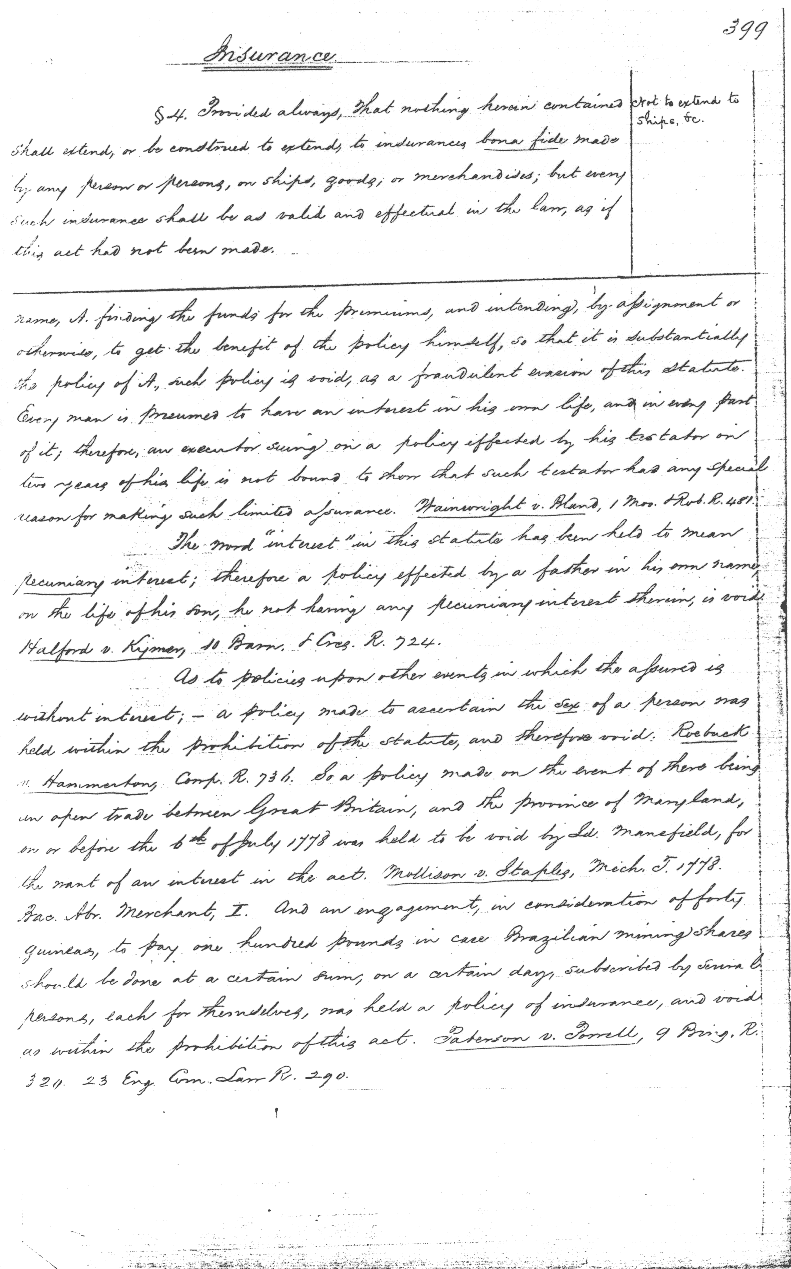 399
Insurance
§4. Provided always, that nothing herein contained
Not to extend to
ships, &c.
shall extend, or be construed to extend, to insurances bona fide made
by any person or persons, on ships, goods, or merchandises; but every
such insurance shall be as valid and effectual in the law, as if
this act had not been made.
name, A. finding the funds for the premiums, and intending, by assignment or
otherwise, to get the benefit of the policy himself, so that it is substantially
the policy of A., such policy is void, as a fraudulent evasion of this statute.
Every man is presumed to have an interest in his own life, and in every part
of it; therefore, an executor suing on a policy effected by his testator on
two years of his life is not bound to show that such testator had any special
reason for making such limited assurance. Wainwright v. Bland, 1 Moo. & Rob. R. 481.
The word "interest" in this statute has been held to mean
pecuniary interest; therefore a policy effected by a father in his own name,
on the life of his son, he not having any pecuniary interest therein, is void.
Halford v. Kymer, 10 Barn. & Cres. R. 724.
As to policies upon other events in which the assured is
without interest; – a policy made to ascertain the sex of a person was
held within the prohibition of the statute, and therefore void. Roebuck
v. Hammerton, Cowp. R. 736. So a policy made on the event of there being
an open trade between Great Britain, and the province of Maryland,
on or before the 6th of July 1778 was held to be void by Ld. Mansfield, for
the want of an interest in the act. Mollison v. Staples, Mich. T. 1778.
Bac. Abr. Merchant, I. And an engagement, in consideration of forty
guineas, to pay one hundred pounds in case Brazilian mining shares
should be done at a certain sum, on a certain day, subscribed by several
persons, each for themselves, was held a policy of insurance, and void
as within the prohibition of this act. Paterson v. Powell, 9 Bing. R.
320. 23 Eng. Com. Law R. 290.